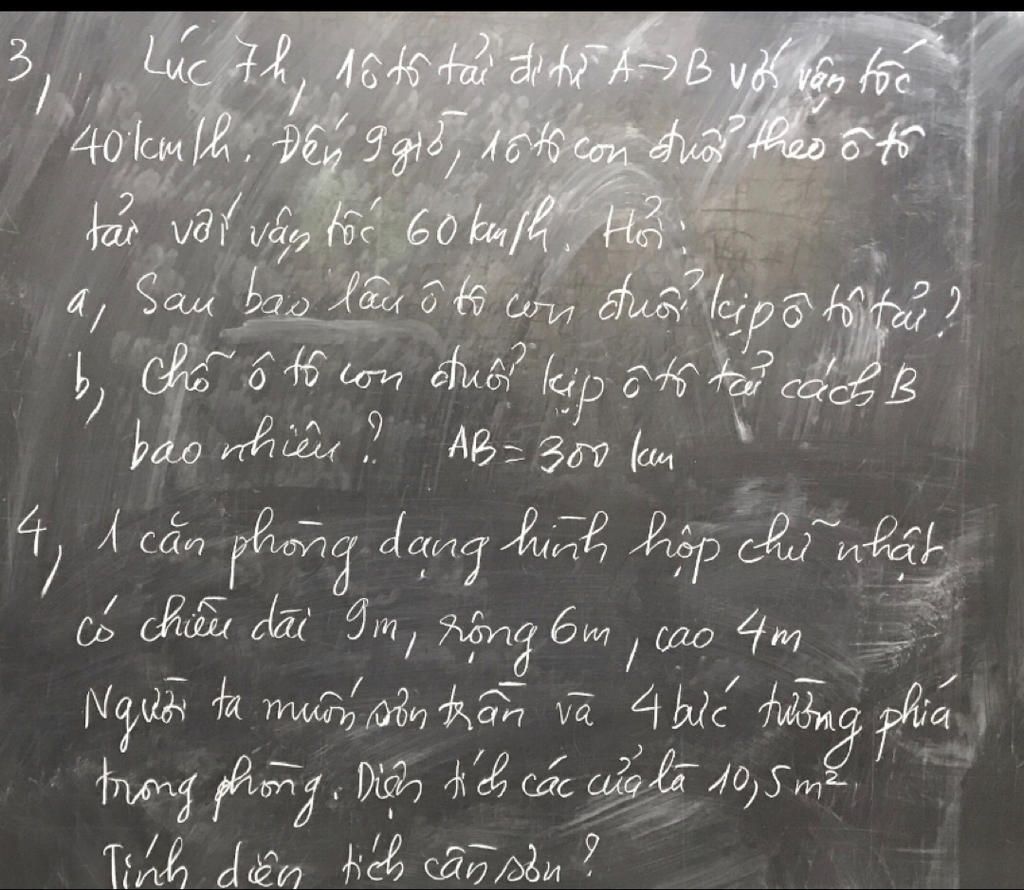 3, Lúc 7h, 1 ô tô tải đi từ A→B với vận tốc
40 km/h. Đến 9 giờ, 1 ô tô con đuổi theo ô tô
tải với vận tốc 60 km/h. Hỏi:
a, Sau bao lâu ô tô con đuổi kịp ô tô tải?
b, Chỗ ô tô con đuổi kịp ô tô tải cách B
bao nhiêu? AB = 300 km
4, 1 căn phòng dạng hình hộp chữ nhật
có chiều dài 9m, rộng 6m, cao 4m
Người ta muốn sơn trần và 4 bức tường phía
trong phòng. Diện tích các cửa là 10,5 m²
Tính diện tích cần sơn?